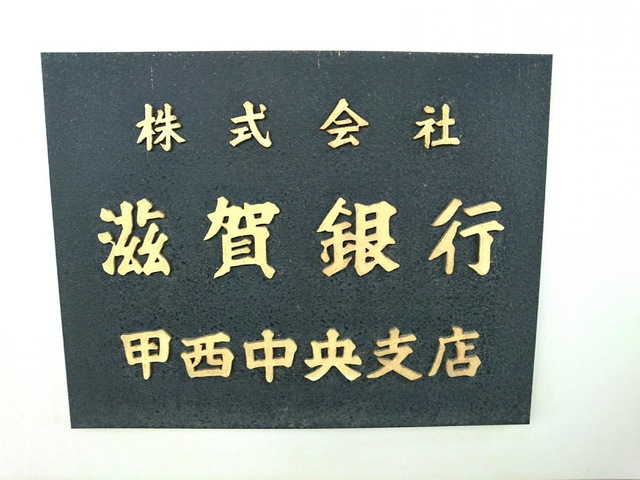 株式会社
滋賀銀行
甲西中央支店